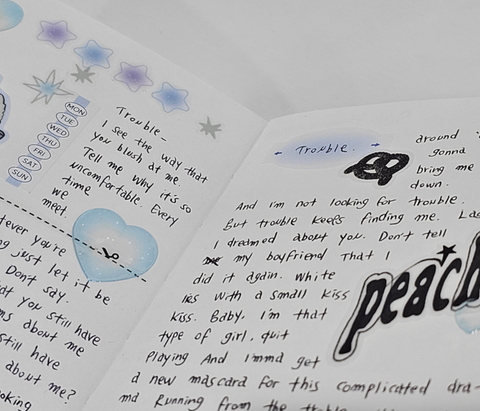 MON
TUE
WED
THU
FRI
SAT
SUN
Trouble-
I see the way that
you blush at me.
Tell me why it's so
uncomfortable. Every
time
we
meet.
you're
just let it be
Don't say.
you still have
about me
still have
about me?
Trouble.
around
gonna
bring me
down.
And I'm not looking for trouble.
But trouble keeps finding me.
I dreamed about you. Don't tell
my boyfriend That I
did it again. White
lies with a small kiss
kiss. Baby, I'm that
type of girl, quit
Playing And Imma get
a new mascara for this complicated dra-
ma Running from the trouble
peach